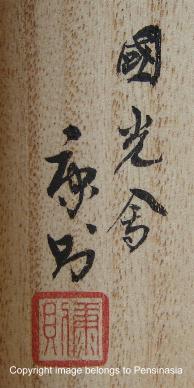 國光會
康則
康則
Copyright image belongs to Pensinasia